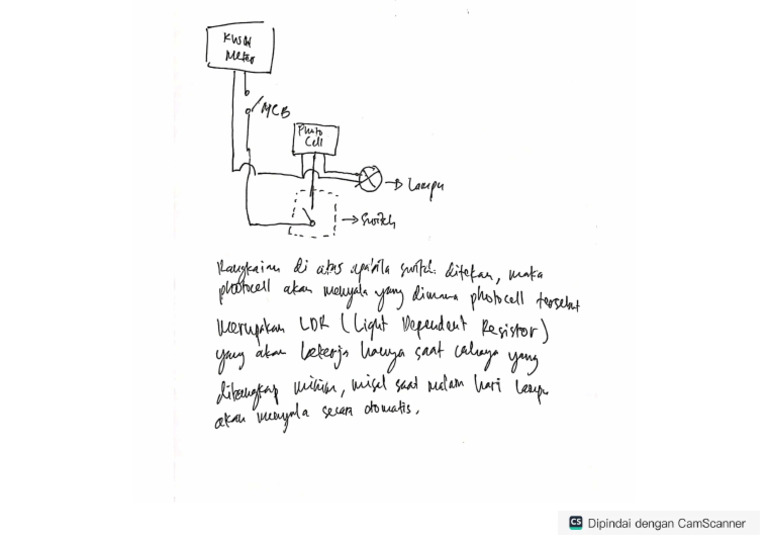 KWH
Meter
MCB
Photo
Cell
Lampu
Switch
Rangkaian di atas apabila switch ditekan, maka
photocell akan menyala yang dimana photocell tersebut
merupakan LDR (Light Dependent Resistor)
yang akan bekerja hanya saat cahaya yang
ditangkap minim, misal saat malam hari lampu
akan menyala secara otomatis.
CS Dipindai dengan CamScanner